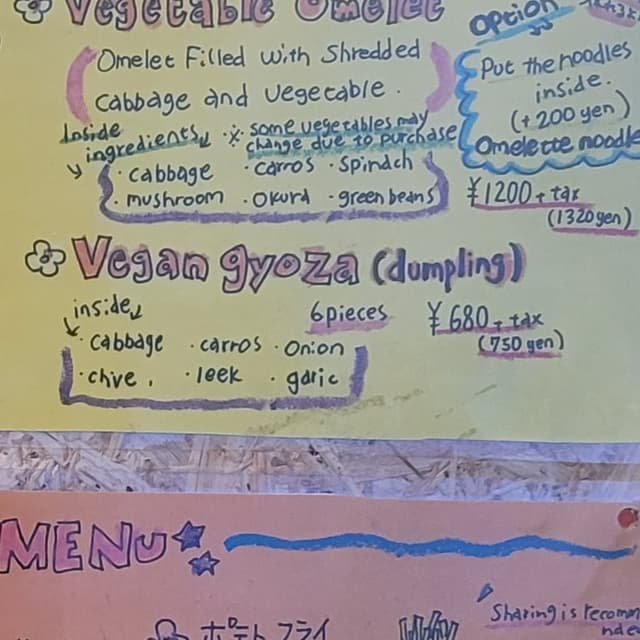 Vegetable Omelet
Omelet Filled with Shredded
cabbage and vegetable.
Inside
ingredients
※ some vegetables may
change due to purchase
・cabbage ・carros ・spinach
・mushroom ・okura ・green beans
option
Put the noodles
inside.
(+200 yen)
Omelette noodle
¥1200+tax
(1320yen)
Vegan gyoza (dumpling)
inside
6pieces
¥680+tax
(750 yen)
・cabbage ・carros ・onion
・chive, ・leek ・garic
MENU
Sharing is recomm
nde
ポテトフライ